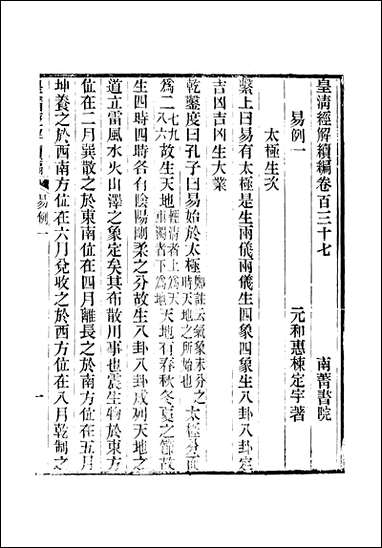 皇清經解續編卷百三十七
南菁書院
易例一
元和惠棟定宇著
太極生次
繫上曰易有太極是生兩儀兩儀生四象四象生八卦八卦定
吉凶吉凶生大業
乾鑿度曰孔子曰易始於太極鄭注云氣象未分之時天地之所始也太極分而
爲二七九八六故生天地輕清者上爲天重濁者下爲地天地有春秋冬夏之節故
生四時四時各有陰陽剛柔之分故生八卦八卦成列天地之
道立雷風水火山澤之象定矣其布散用事也震生物於東方
位在二月巽散之於東南位在四月離長之於南方位在五月
坤養之於西南方位在六月兌收之於西方位在八月乾制之
易例一
一